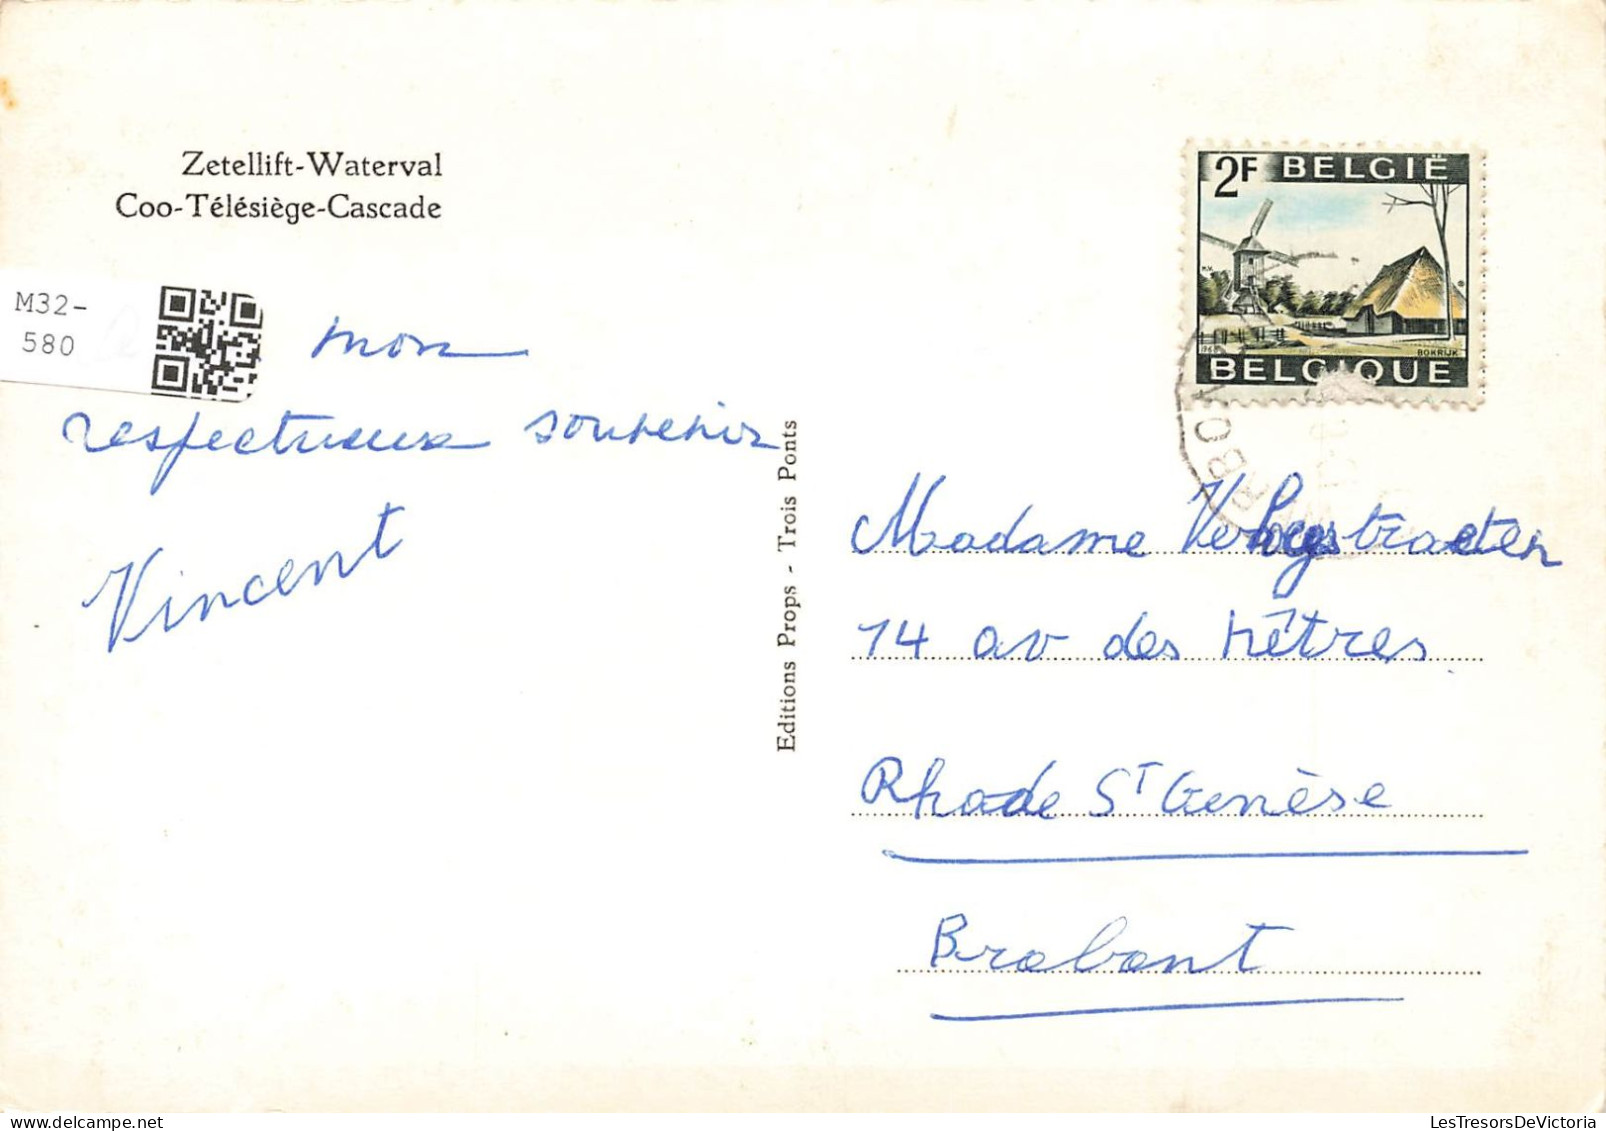 Zetellift-Waterval
Coo-Télésiège-Cascade
M32-
580
mon
respectueux souvenir
Vincent
Editions Props - Trois Ponts
2F BELGIË
BOKRIJK
BELGIQUE
Madame
14 av des hêtres
Rhode St Genèse
Brabant
LesTresorsDeVictoria